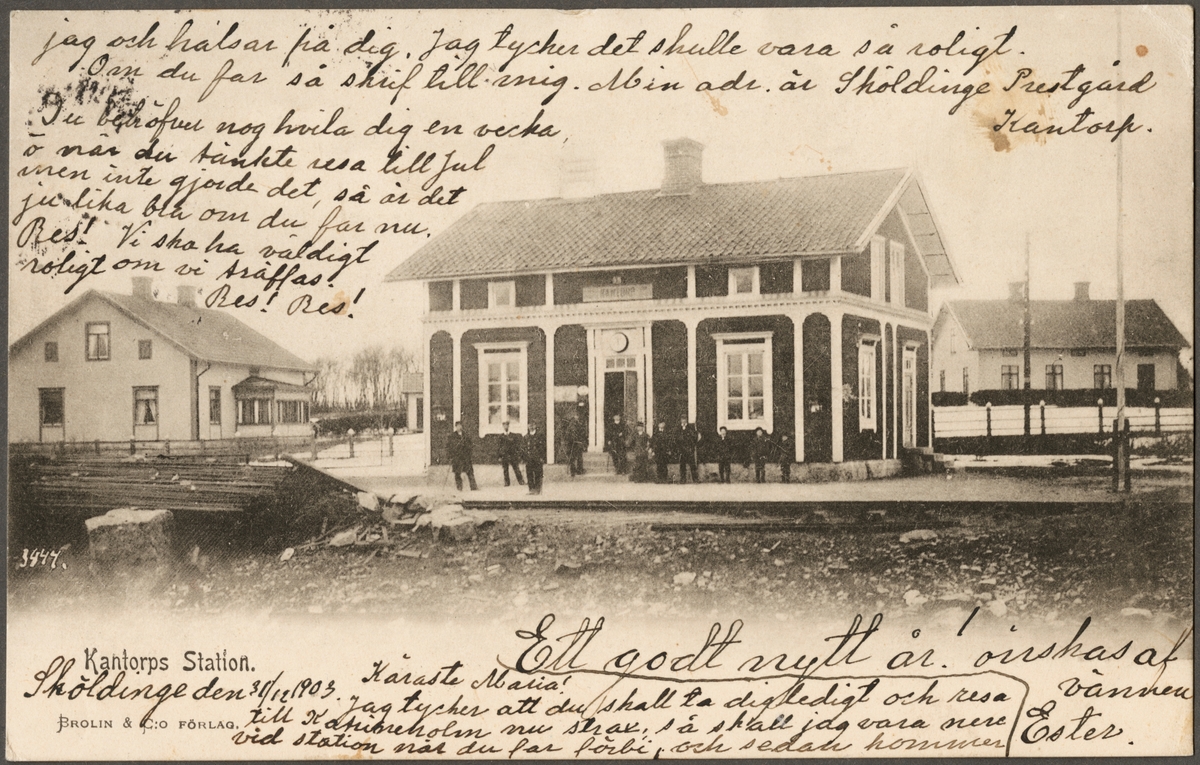 jag och hälsar på dig. Jag tycher det skulle vara så roligt.
Om du far så skrif till mig. Min adr. är Sköldinge Prestgård
Kantorp.
Du behöfver nog hvila dig en vecka,
o när du tänkte resa till Jul
men inte gjorde det, så är det
ju lika bra om du far nu.
Res! Vi ska ha väldigt
roligt om vi träffas.
Res! Res!
KANTORP
3447.
Kantorps Station.
Ett godt nytt år! önskas af
vännen
Ester.
Sköldinge den 31/12 1903.
Käraste Maria!
Jag tycher att du skall ta dig ledigt och resa
till Katrineholm nu strax, så skall jag vara nere
vid station när du far förbi, och sedan kommer
BROLIN & C:O FÖRLAG.